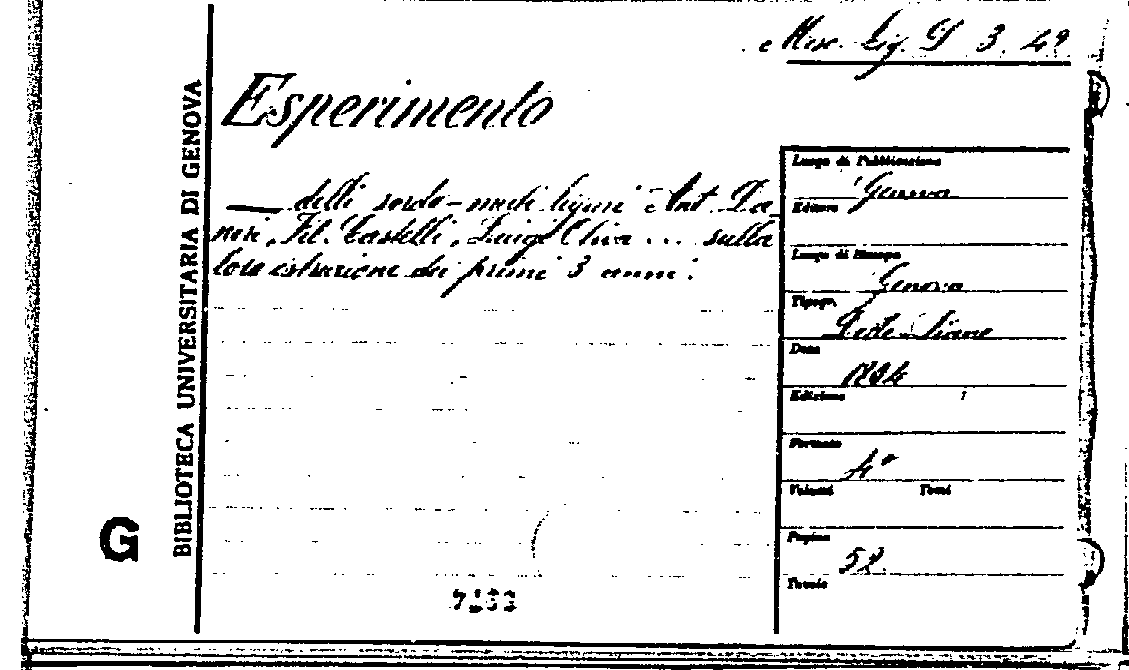 Misc. Lig. D 3. 49
Esperimento
— delli sordo-muti liguri Ant. Da
neri, Fil. Castelli, Luigi Oliva ... sulla
loro istruzione dei primi 3 anni.
BIBLIOTECA UNIVERSITARIA DI GENOVA
G
Luogo di Pubblicazione
Genova
Editore
Luogo di Stampa
Genova
Tipogr.
Data
Edizione
Formato
4°
Volumi Tomi
Pagine
52.
Tavole